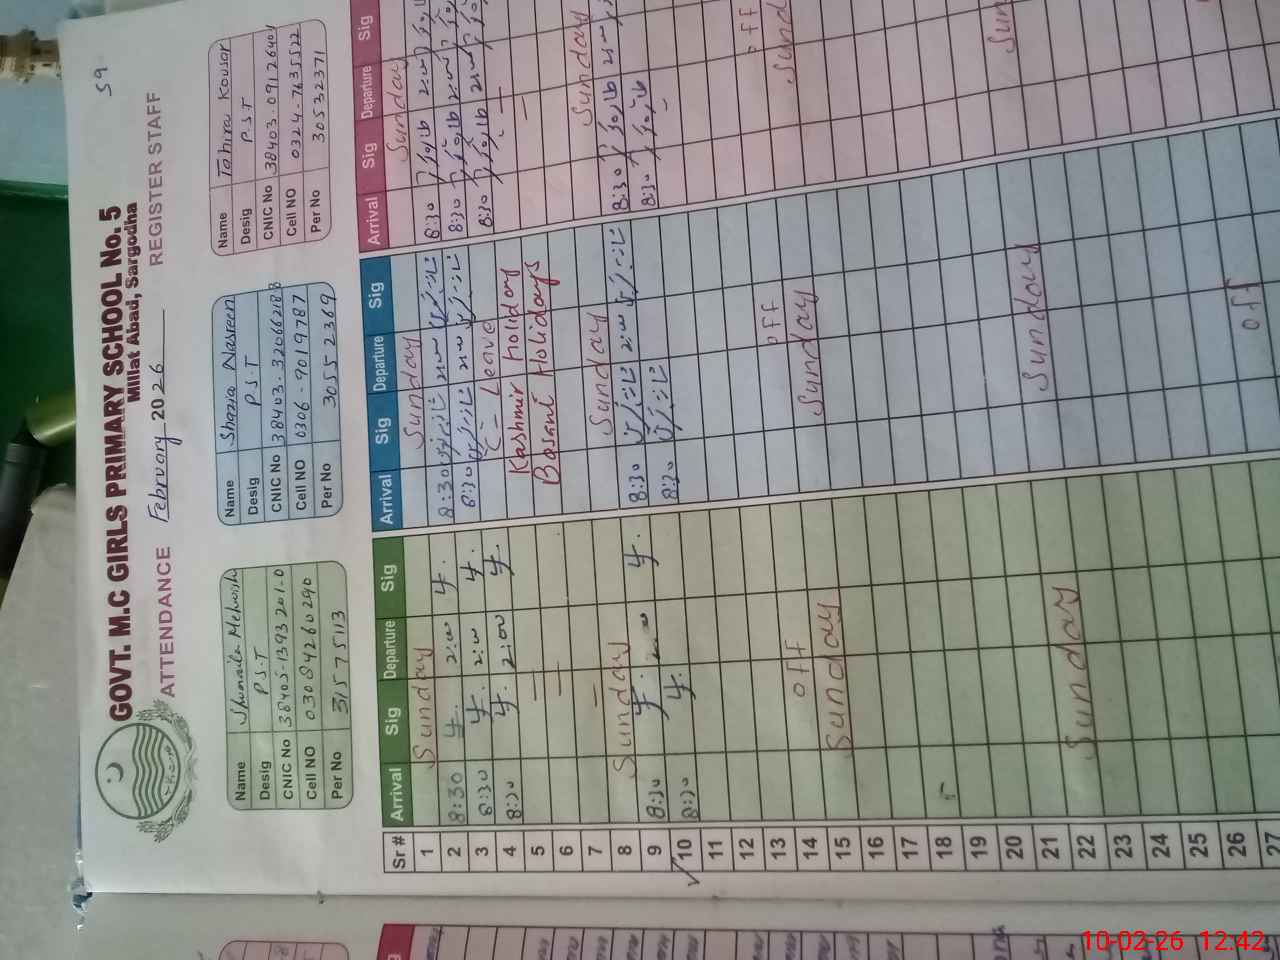 59
GOVT. M.C GIRLS PRIMARY SCHOOL No. 5
Millat Abad, Sargodha
ATTENDANCE February 2026 REGISTER STAFF
Name Shumaila Mehwish
Desig P.S.T
CNIC No 38405-1393201-0
Cell NO 03094260290
Per No 31575113
Name Shazia Nasreen
Desig P.S.T
CNIC No 38403-3206621-8
Cell NO 0306-9019787
Per No 30552369
Name Tahira Kousar
Desig P.S.T
CNIC No 38403-0912640
Cell NO 0324-7635522
Per No 30532371
Sr # Arrival Sig Departure Sig Arrival Sig Departure Sig Arrival Sig Departure Sig
1 Sunday Sunday Sunday
2 8:30 2:00 8:30 2:00 8:30 2:00
3 8:30 2:00 8:30 2:00 8:30 2:00
4 8:30 2:00 C-Leave 8:30 2:00
5 Kashmir Holiday
6 Basant Holidays
7
8 Sunday Sunday Sunday
9 8:30 2:00 8:30 2:00 8:30 2:00
10 8:30 8:30 8:30
11
12
13
14 OFF off off
15 Sunday Sunday Sund
16
17
18
19
20
21
22 Sunday Sunday Sun
23
24
25
26
27
off
10-02-26 12:42